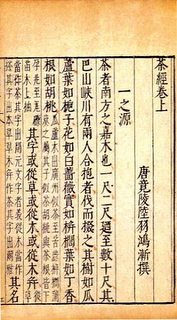 茶經卷上
唐竟陵陸羽鴻漸撰
一之源
茶者南方之嘉木也一尺二尺迺至數十尺其
巴山峽川有兩人合抱者伐而掇之其樹如瓜
蘆葉如梔子花如白薔薇實如栟櫚葉如丁香
根如胡桃瓜蘆木出廣州似茶至苦澀栟櫚蒲葵之屬其子似茶胡桃與茶根皆下
孕兆至瓦礫苗木上抽其字或從草或從木或從木草并從草
當作茶其字出開元文字音義從木當作其字出本草草木并作荼其字出爾雅其名